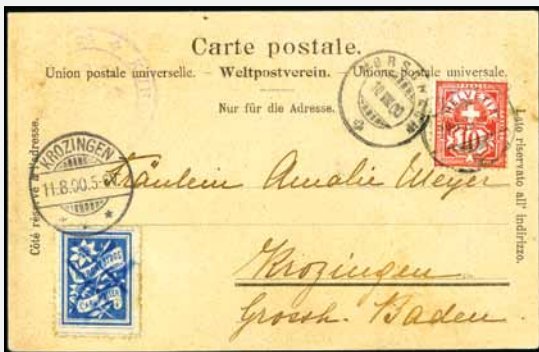 Carte postale.
Union postale universelle. – Weltpostverein. – Unione postale universale.
Nur für die Adresse.
Côté réservé à l'adresse.
Lato riservato all' indirizzo.
HELVETIA
10
KROZINGEN
11.8.00.5-6
Fräulein Amalie Meyer
Krozingen
Grossh. Baden.